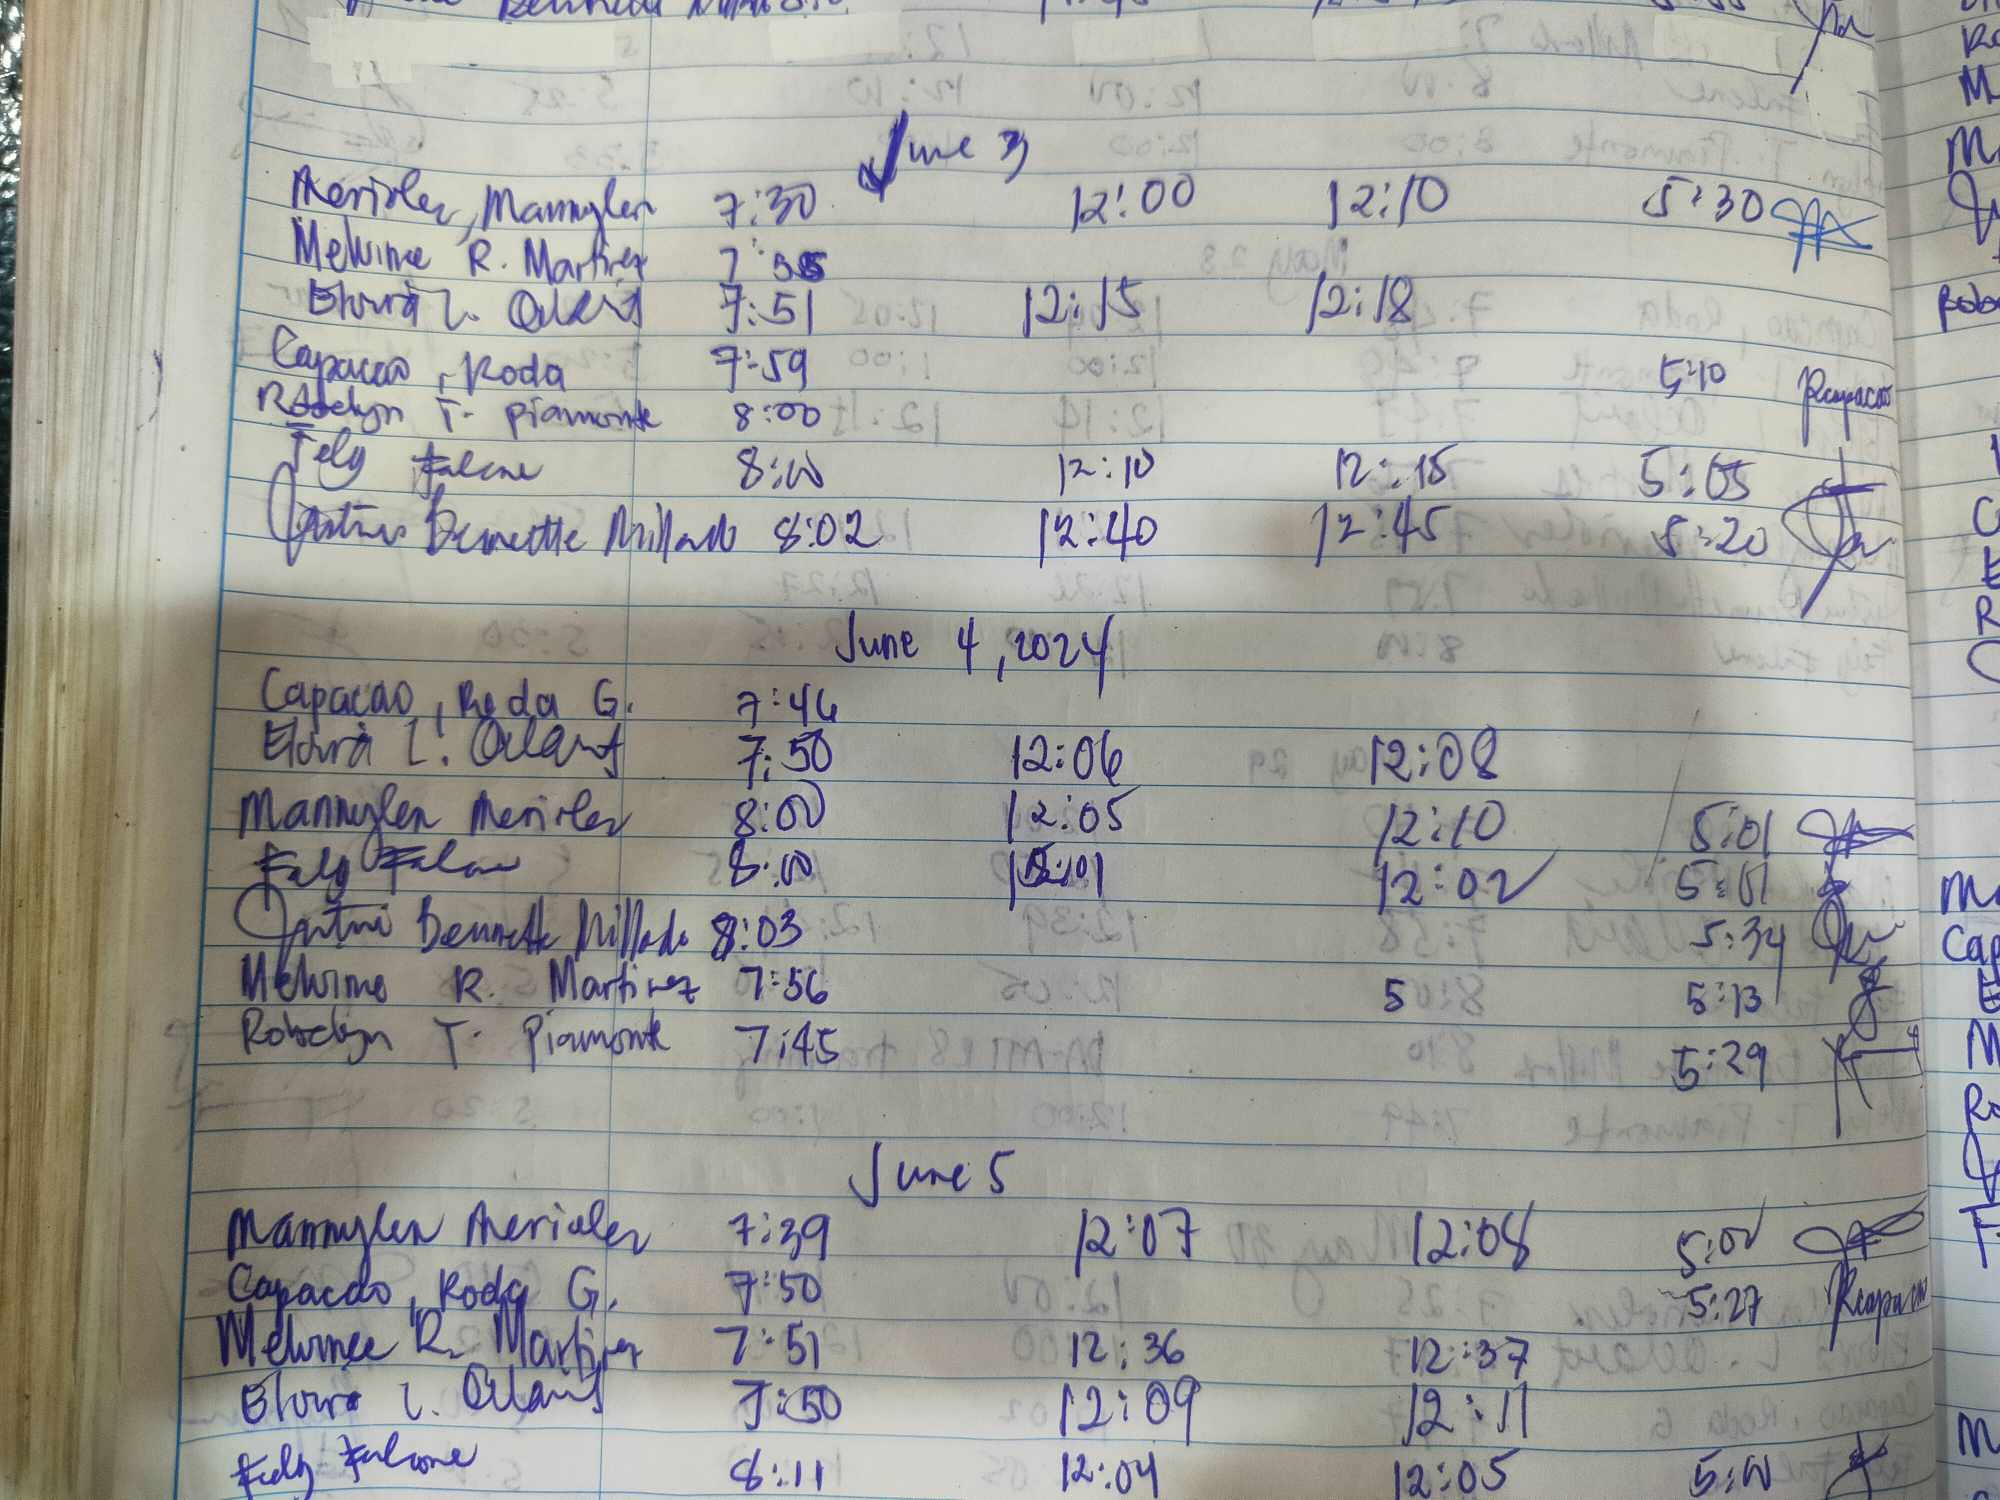 June 3
Merioles, Mannylen 7:30 12:00 12:10 5:30
Melvine R. Martinez 7:55
Elvira L. 7:51 12:15 12:18
Capacao, Roda 7:59 5:10 Rcapacao
Robelyn T. Piamonte 8:00
Fely Falcone 8:00 12:10 12:15 5:05
Bennette Millado 8:02 12:40 12:45 5:20
June 4, 2024
Capacao, Roda G. 7:46
Elvira L. 7:50 12:06 12:08
Mannylen Merioles 8:00 12:05 12:10 5:01
Fely Falcone 8:00 12:01 12:02 5:01
Bennette Millado 8:03 5:34
Melvine R. Martinez 7:56 5 5:13
Robelyn T. Piamonte 7:45 5:29
June 5
Mannylen Merioles 7:39 12:07 12:08 5:00
Capacao, Roda G. 7:50 5:27 Rcapacao
Melvinee R. Martinez 7:51 12:36 12:37
Elvira L. 7:50 12:09 12:11
Fely Falcone 8:11 12:04 12:05 5:00